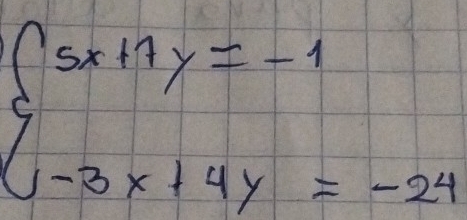 5x+7y=-1
-3x+4y=-24